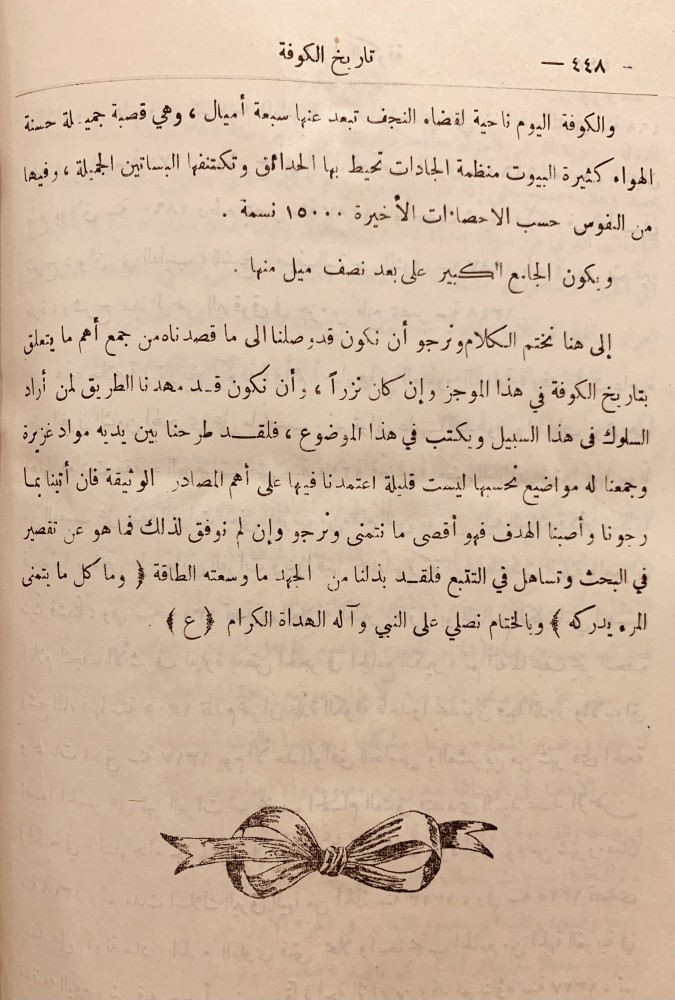 - ٤٤٨ —
تاريخ الكوفة
والكوفة اليوم ناحية لقضاء النجف تبعد عنها سبعة أميال ، وهي قصبة جميلة حسنة
الهواء كثيرة البيوت منظمة الجادات تحيط بها الحدائق وتكتنفها البساتين الجميلة ، وفيها
من النفوس حسب الاحصائات الأخيرة ١٥٠٠٠ نسمة .
ويكون الجامع الكبير على بعد نصف ميل منها .
إلى هنا نختم الكلام ونرجو أن نكون قد وصلنا الى ما قصدناه من جمع أهم ما يتعلق
بتاريخ الكوفة في هذا الموجز وإن كان نزراً ، وأن نكون قد مهدنا الطريق لمن أراد
السلوك في هذا السبيل ويكتب في هذا الموضوع ، فلقد طرحنا بين يديه مواد غزيرة
وجمعنا له مواضيع نحسبها ليست قليلة اعتمدنا فيها على أهم المصادر الوثيقة فان أتينا بما
رجونا وأصبنا الهدف فهو أقصى ما نتمنى ونرجو وإن لم نوفق لذلك فما هو عن تقصير
في البحث وتساهل في التتبع فلقد بذلنا من الجهد ما وسعته الطاقة ﴿ وما كل ما يتمنى
المرء يدركه ﴾ وبالختام نصلي على النبي وآله الهداة الكرام ﴿ ع ﴾ .